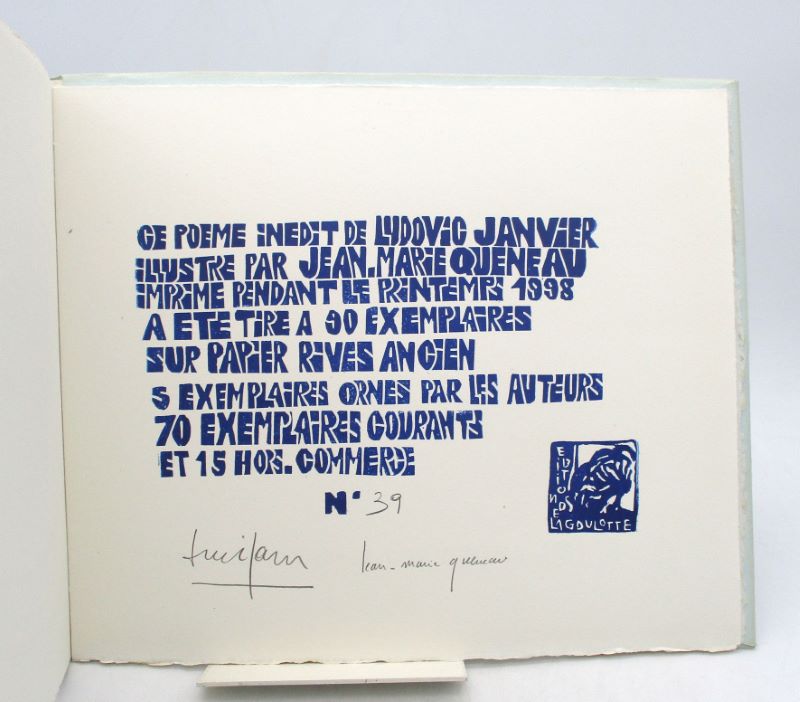 CE POEME INEDIT DE LUDOVIC JANVIER
ILLUSTRE PAR JEAN.MARIE QUENEAU
IMPRIME PENDANT LE PRINTEMPS 1998
A ETE TIRE A 90 EXEMPLAIRES
SUR PAPIER RIVES ANCIEN
5 EXEMPLAIRES ORNES PAR LES AUTEURS
70 EXEMPLAIRES COURANTS
ET 15 HORS.COMMERCE
N° 39
Jean-marie queneau
EDITIONS DE LA GOULOTTE